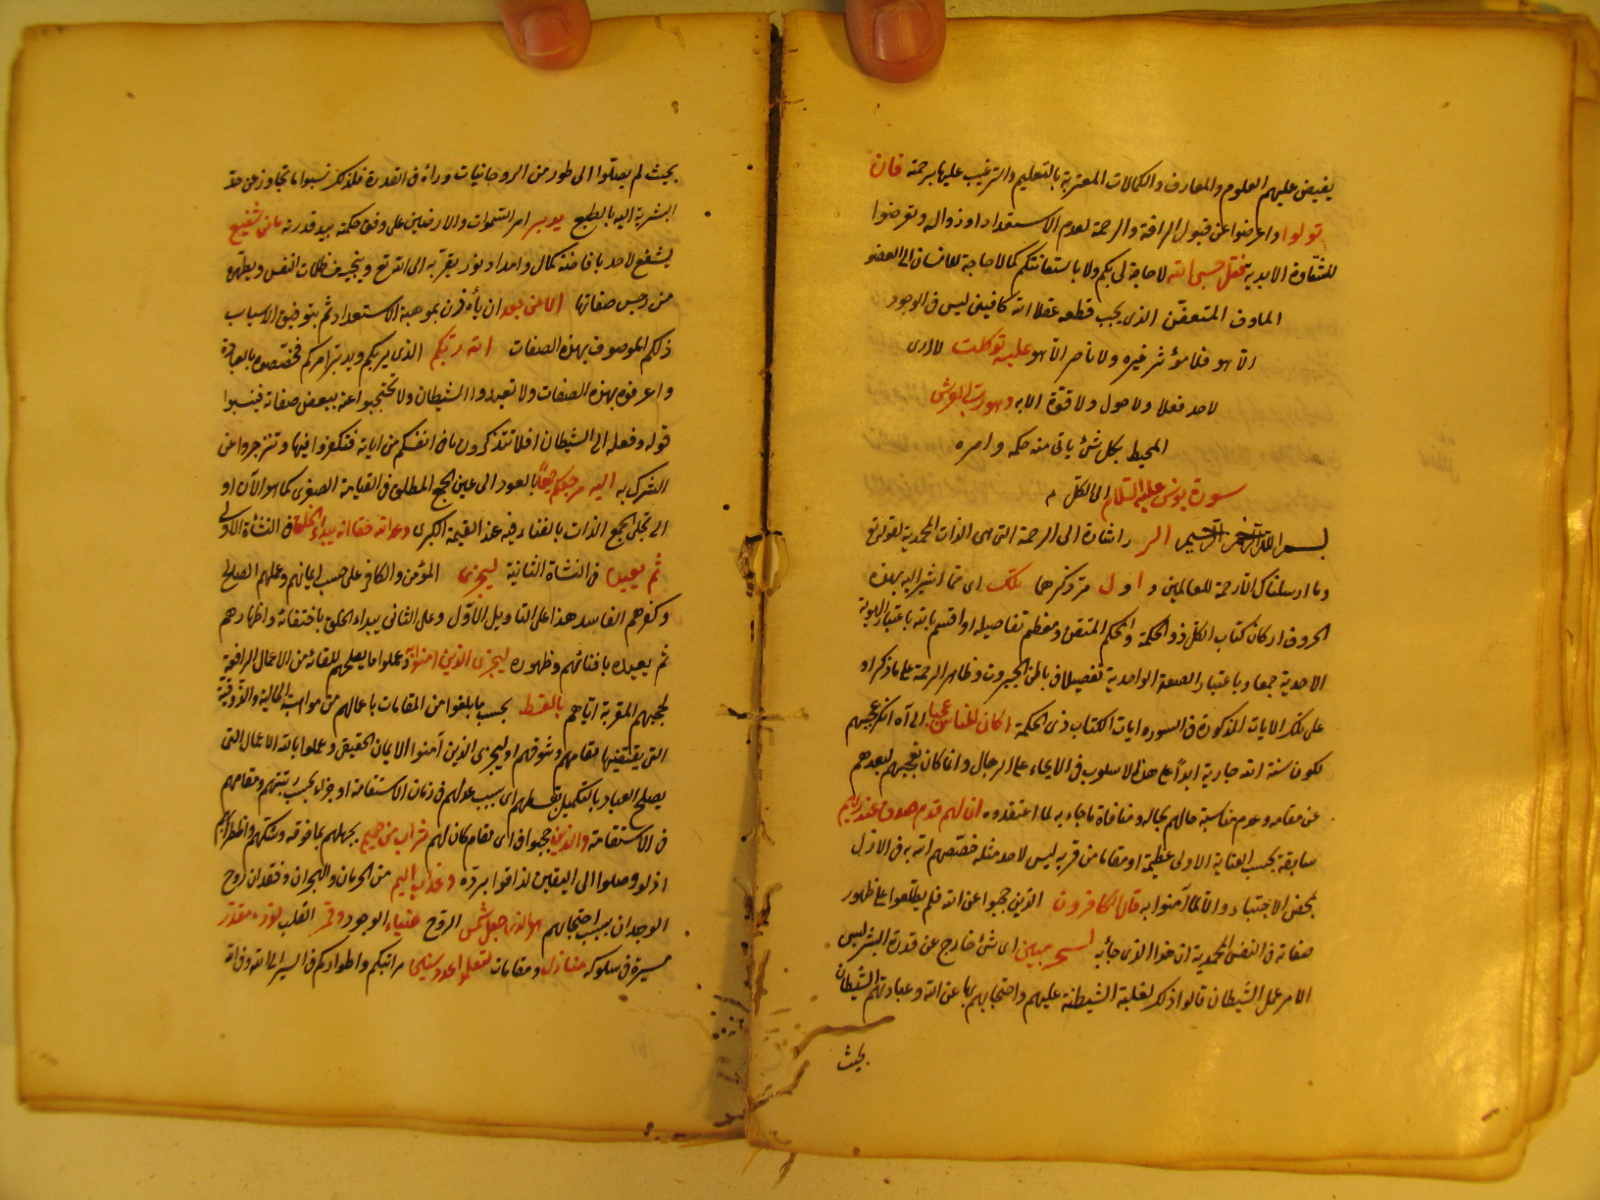 يفيض عليهم العلوم والمعارف والكمالات المقربة بالتعليم والترغيب عليها برحمته فان
تولوا واعرضوا عن قبول الرافة والرحمة لعدم الاستعداد او زواله وتعرضوا
للشقاوة الابدية فقل حسبى الله لا حاجة لى بكم ولا باستعانتكم كما لا حاجة للانسان الى العضو
الماوف المتعفن الذى يجب قطعه عقلا الله كافينى ليس فى الوجود
الا هو فلا مؤثر غيره ولا ناصر الا هو عليه توكلت لا ارى
لاحد فعلا ولا حول ولا قوة الا به وهو رب العرش
المحيط بكل شئ ياتى منه حكمه وامره
سورة يونس عليه السلام الى الكل
بسم الله الرحمن الرحيم الر ا اشارة الى الرحمة التى هى الذات المحمدية لقوله تع
وما ارسلناك الا رحمة للعالمين و ا و ل مر ذكرها تلك اى ما اشير اليه بهذه
الحروف اركان كتاب الكل ذو الحكمة والمحكم المتقن ومعظم تفاصيله او اقسم بالله باعتبار الهوية
الاحدية جمعا وباعتبار الصفة الواحدية تفصيلا فى باطن الجبروت وظاهر الرحمة على ما ذكر او
على تلك الايات المذكورة فى السورة ايات الكتاب ذى الحكمة اكان للناس عجبا الى آه انكر عجبهم
لكون سنة الله جارية ابدا على هذا الاسلوب فى الايحاء على الرجال وانما كان تعجبهم لبعدهم
عن مقامه وعدم مناسبة حالهم بحاله ومنافاة ما جاء به لما اعتقدوه ان لهم قدم صدق عند ربهم
سابقة بحسب العناية الاولى عظيمة او مقاما من قربه ليس لاحد مثله خصصهم الله به فى الازل
بمحض الاجتباء والا لما آمنوا به قال الكافرون الذين حجبوا عن الله فلم يطلعوا على ظهور
صفاته فى النفس المحمدية ان هذا الذى جاء به لسحر مبين اى شئ خارج عن قدرة البشر ليس
الا من عمل الشيطان قالوا ذلك لغلبة الشيطنة عليهم واحتجابهم بها عن الله وعبادتهم الشيطان
بحيث
بحيث لم يصلوا الى طور من الروحانيات وراءه فى القدرة فلذلك نسبوا ما تجاوز عن حد
البشرية اليه بالطبع يدبر امر السموات والارضين على وفق حكمته بيد قدرته ما من شفيع
يشفع لاحد بافاضة كمال وامداد نور يقربه الى الله تع وينجيه من ظلمات النفس ويطهره
من رجس صفاتها الا من بعد ان يأذن بموهبة الاستعداد ثم بتوفيق الاسباب
ذلكم الموصوف بهذه الصفات الله ربكم الذى يربكم ويدبر امركم فخصصوه بالعبادة
واعرفوه بهذه الصفات ولا تعبدوا الشيطان ولا تحتجبوا عنه ببعض صفاته فتنسبوا
قوله وفعله الى الشيطان افلا تتذكرون ما فى انفسكم من اياته فتفكروا فيها وتنزجروا عن
الشرك به اليه مرجعكم جميعا بالعود الى عين الجمع المطلق فى القيامة الصغرى كما هو الآن او
الى تجلى الجمع الذات بالفناء فيه عند القيمة الكبرى وعد الله حقا انه يبدأ الخلق فى النشاة الاولى
ثم يعيده فى النشاة الثانية ليجزى المؤمن والكافر على حسب ايمانهم وعملهم الصالح
وكفرهم الفاسد هذا على التاويل الاول وعلى الثانى يبداء الخلق باختفائه واظهارهم
ثم يعيده بافنائهم وظهوره ليجزى الذين امنوا به وعملوا ما يصلحهم للقائه من الاعمال الرافعة
لحجبهم المقربة اياهم بالقسط بحسب ما بلغوا من المقامات باعمالهم من مواهب الحالية والذوقية
التى يقتضيها مقامهم وشوقهم او ليجزى الذين آمنوا الايمان الحقيقى وعملوا بالله الاعمال التى
يصلح العباد بالتكميل بقسطهم اى بسبب عدلهم فى زمان الاستقامة او جزاء بحسب رتبتهم ومقامهم
فى الاستقامة والذين حجبوا فى اى مقام كان لهم شراب من حميم بجهلهم بما فوقه وشكهم واضطرابهم
اذ لو وصلوا الى اليقين لذاقوا برده وعذاب اليم من الحرمان والهجران وفقدان روح
الوجدان بسبب احتجابهم هو الذى جعل شمس الروح ضياء الوجود وقمر القلب نوره وقدر
مسيره فى سلوكه منازل ومقامات لتعلموا عدد سنين مراتبكم واطواركم فى السير الى الله وفى الله